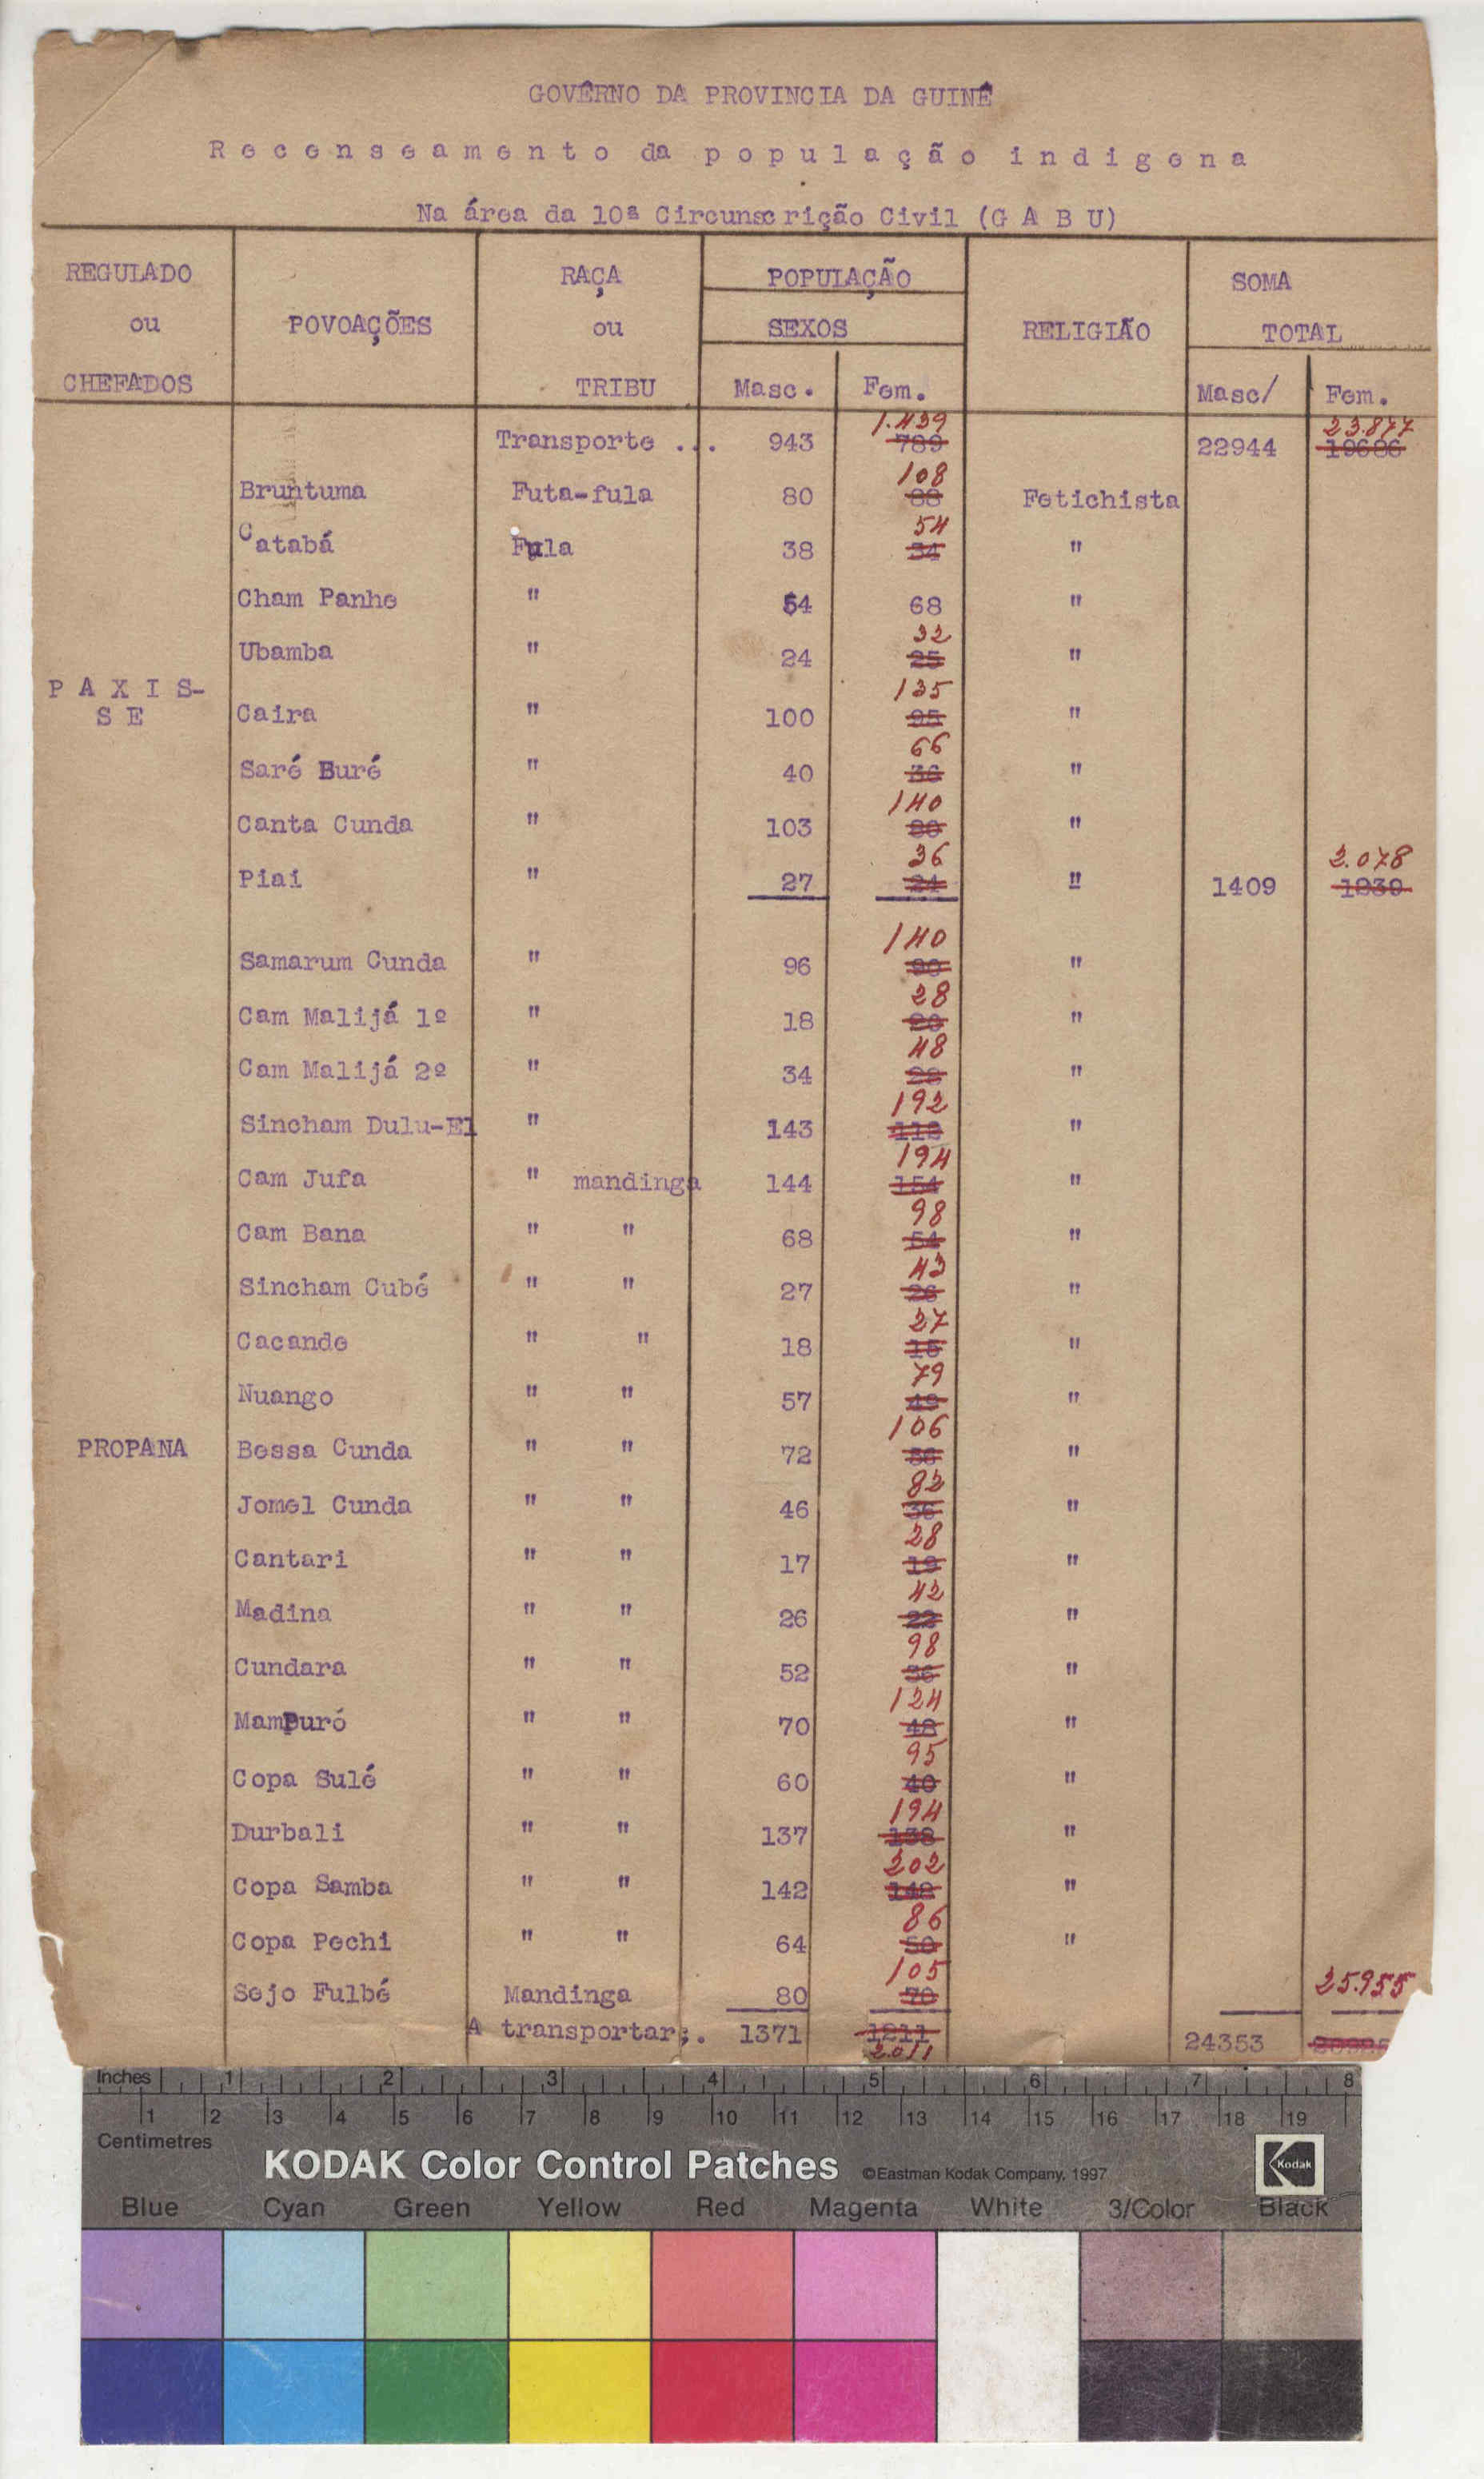 GOVÊRNO DA PROVINCIA DA GUINÉ
Recenseamento da população indigena
Na área da 10ª Circunscrição Civil (G A B U)
REGULADO ou CHEFADOS
POVOAÇÕES
RAÇA ou TRIBU
POPULAÇÃO
SEXOS
Masc. Fem.
RELIGIÃO
SOMA TOTAL
Masc/ Fem.
Transporte ... 943 1.439 789 22944 23.877 19686
Bruntuma Futa-fula 80 108 88 Fetichista
Catabá Fula 38 54 34 "
Cham Panhe " 54 68 "
Ubamba " 24 32 25 "
PAXIS-
SE
Caira " 100 135 95 "
Saré Buré " 40 66 36 "
Canta Cunda " 103 140 "
Piai " 27 36 24 " 1409 2.078 1239
Samarum Cunda " 96 140 90 "
Cam Malijá 1º " 18 28 20 "
Cam Malijá 2º " 34 48 "
Sincham Dulu-El " 143 192 "
Cam Jufa " mandinga 144 194 154 "
Cam Bana " " 68 98 54 "
Sincham Cubé " " 27 43 26 "
Cacande " " 18 27 15 "
Nuango " " 57 79 49 "
PROPANA Bessa Cunda " " 72 106 "
Jomel Cunda " " 46 82 36 "
Cantari " " 17 28 19 "
Madina " " 26 42 22 "
Cundara " " 52 98 36 "
Mampuró " " 70 124 48 "
Copa Sulé " " 60 95 40 "
Durbali " " 137 194 138 "
Copa Samba " " 142 202 142 "
Copa Pechi " " 64 86 50 "
Sejo Fulbé Mandinga 80 105 70 25.955
A transportar;. 1371 1211 2.011 24353
Inches 1 2 3 4 5 6 7 8
1 2 3 4 5 6 7 8 9 10 11 12 13 14 15 16 17 18 19
Centimetres
KODAK Color Control Patches ©Eastman Kodak Company, 1997 Kodak
Blue Cyan Green Yellow Red Magenta White 3/Color Black